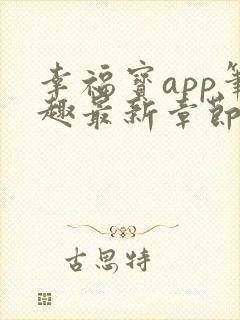 幸福宝app笔
趣最新章节
古思特